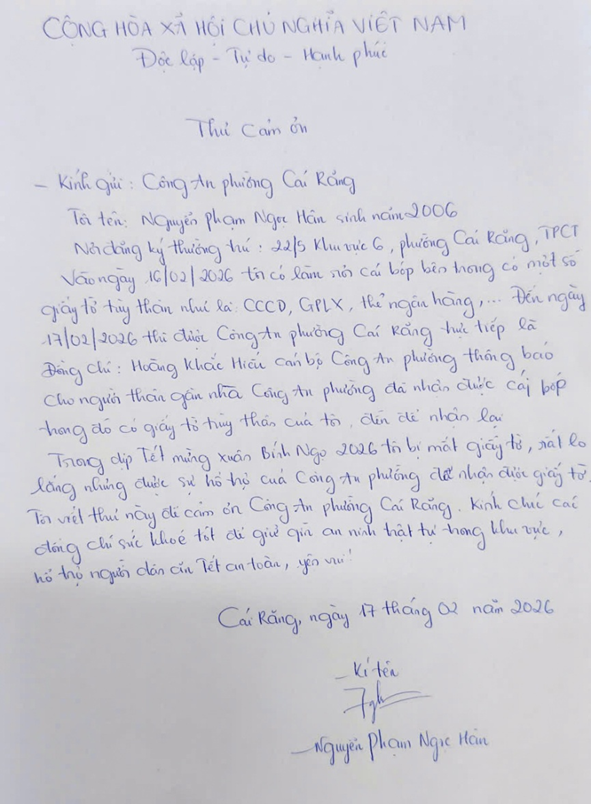 CỘNG HÒA XÃ HỘI CHỦ NGHĨA VIỆT NAM
Độc lập - Tự do - Hạnh phúc
Thư cảm ơn
- Kính gửi: Công An phường Cái Răng
Tôi tên: Nguyễn Phạm Ngọc Hân sinh năm 2006
Nơi đăng ký thường trú: 22/5 khu vực 6, phường Cái Răng, TPCT
Vào ngày 16/02/2026 tôi có làm rơi cái bóp bên trong có một số
giấy tờ tùy thân như là CCCD, GPLX, thẻ ngân hàng,... Đến ngày
17/02/2026 thì được Công An phường Cái Răng trực tiếp là
Đồng chí: Hoàng Khắc Hiếu cán bộ Công An phường thông báo
cho người thân gần nhà Công An phường đã nhận được cái bóp
trong đó có giấy tờ tùy thân của tôi, đến để nhận lại
Trong dịp Tết mừng xuân Bính Ngọ 2026 tôi bị mất giấy tờ, rất lo
lắng nhưng được sự hỗ trợ của Công An phường để nhận được giấy tờ.
Tôi viết thư này để cảm ơn Công An phường Cái Răng. Kính chúc các
đồng chí sức khoẻ tốt để giữ gìn an ninh trật tự trong khu vực,
hỗ trợ người dân ăn Tết an toàn, yên vui!
Cái Răng, ngày 17 tháng 02 năm 2026
- Kí tên
- Nguyễn Phạm Ngọc Hân